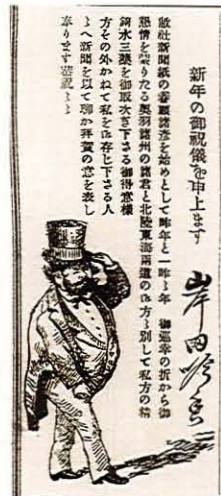 新年の御祝儀を申上ます
岸田吟香
敝社新聞紙の看觀諸彦を始めとして昨年と一昨々年 御巡幸の折から御
懇情を蒙りたる奥羽諸州の諸君と北陸東海兩道の御方々別して私方の精
錡水三藥を御取次ぎ下さる御得意様
方その外かねて私を御存じ下さる人
々へ新聞を以て聊か拜賀の意を表し
奉ります恭祝々々